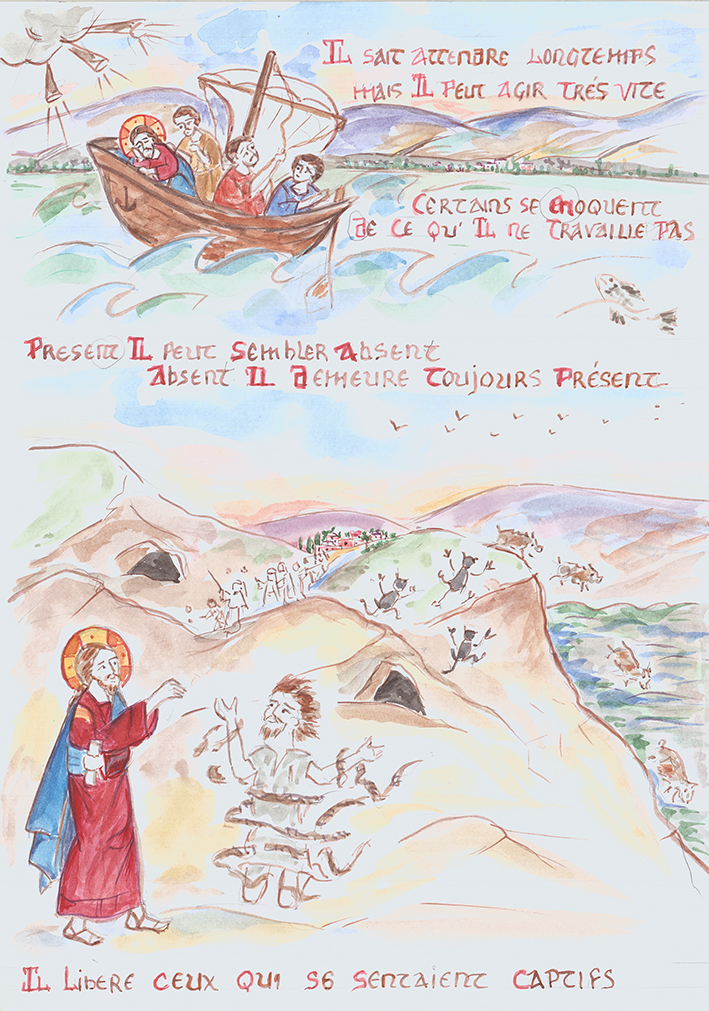 IL SAIT ATTENDRE LONGTEMPS
MAIS IL PEUT AGIR TRÉS VITE
CERTAINS SE MOQUENT
DE CE QU' IL NE TRAVAILLE PAS
PRESENT IL PEUT SEMBLER ABSENT
ABSENT IL DEMEURE TOUJOURS PRÉSENT
IL LIBERE CEUX QUI SE SENTAIENT CAPTIFS